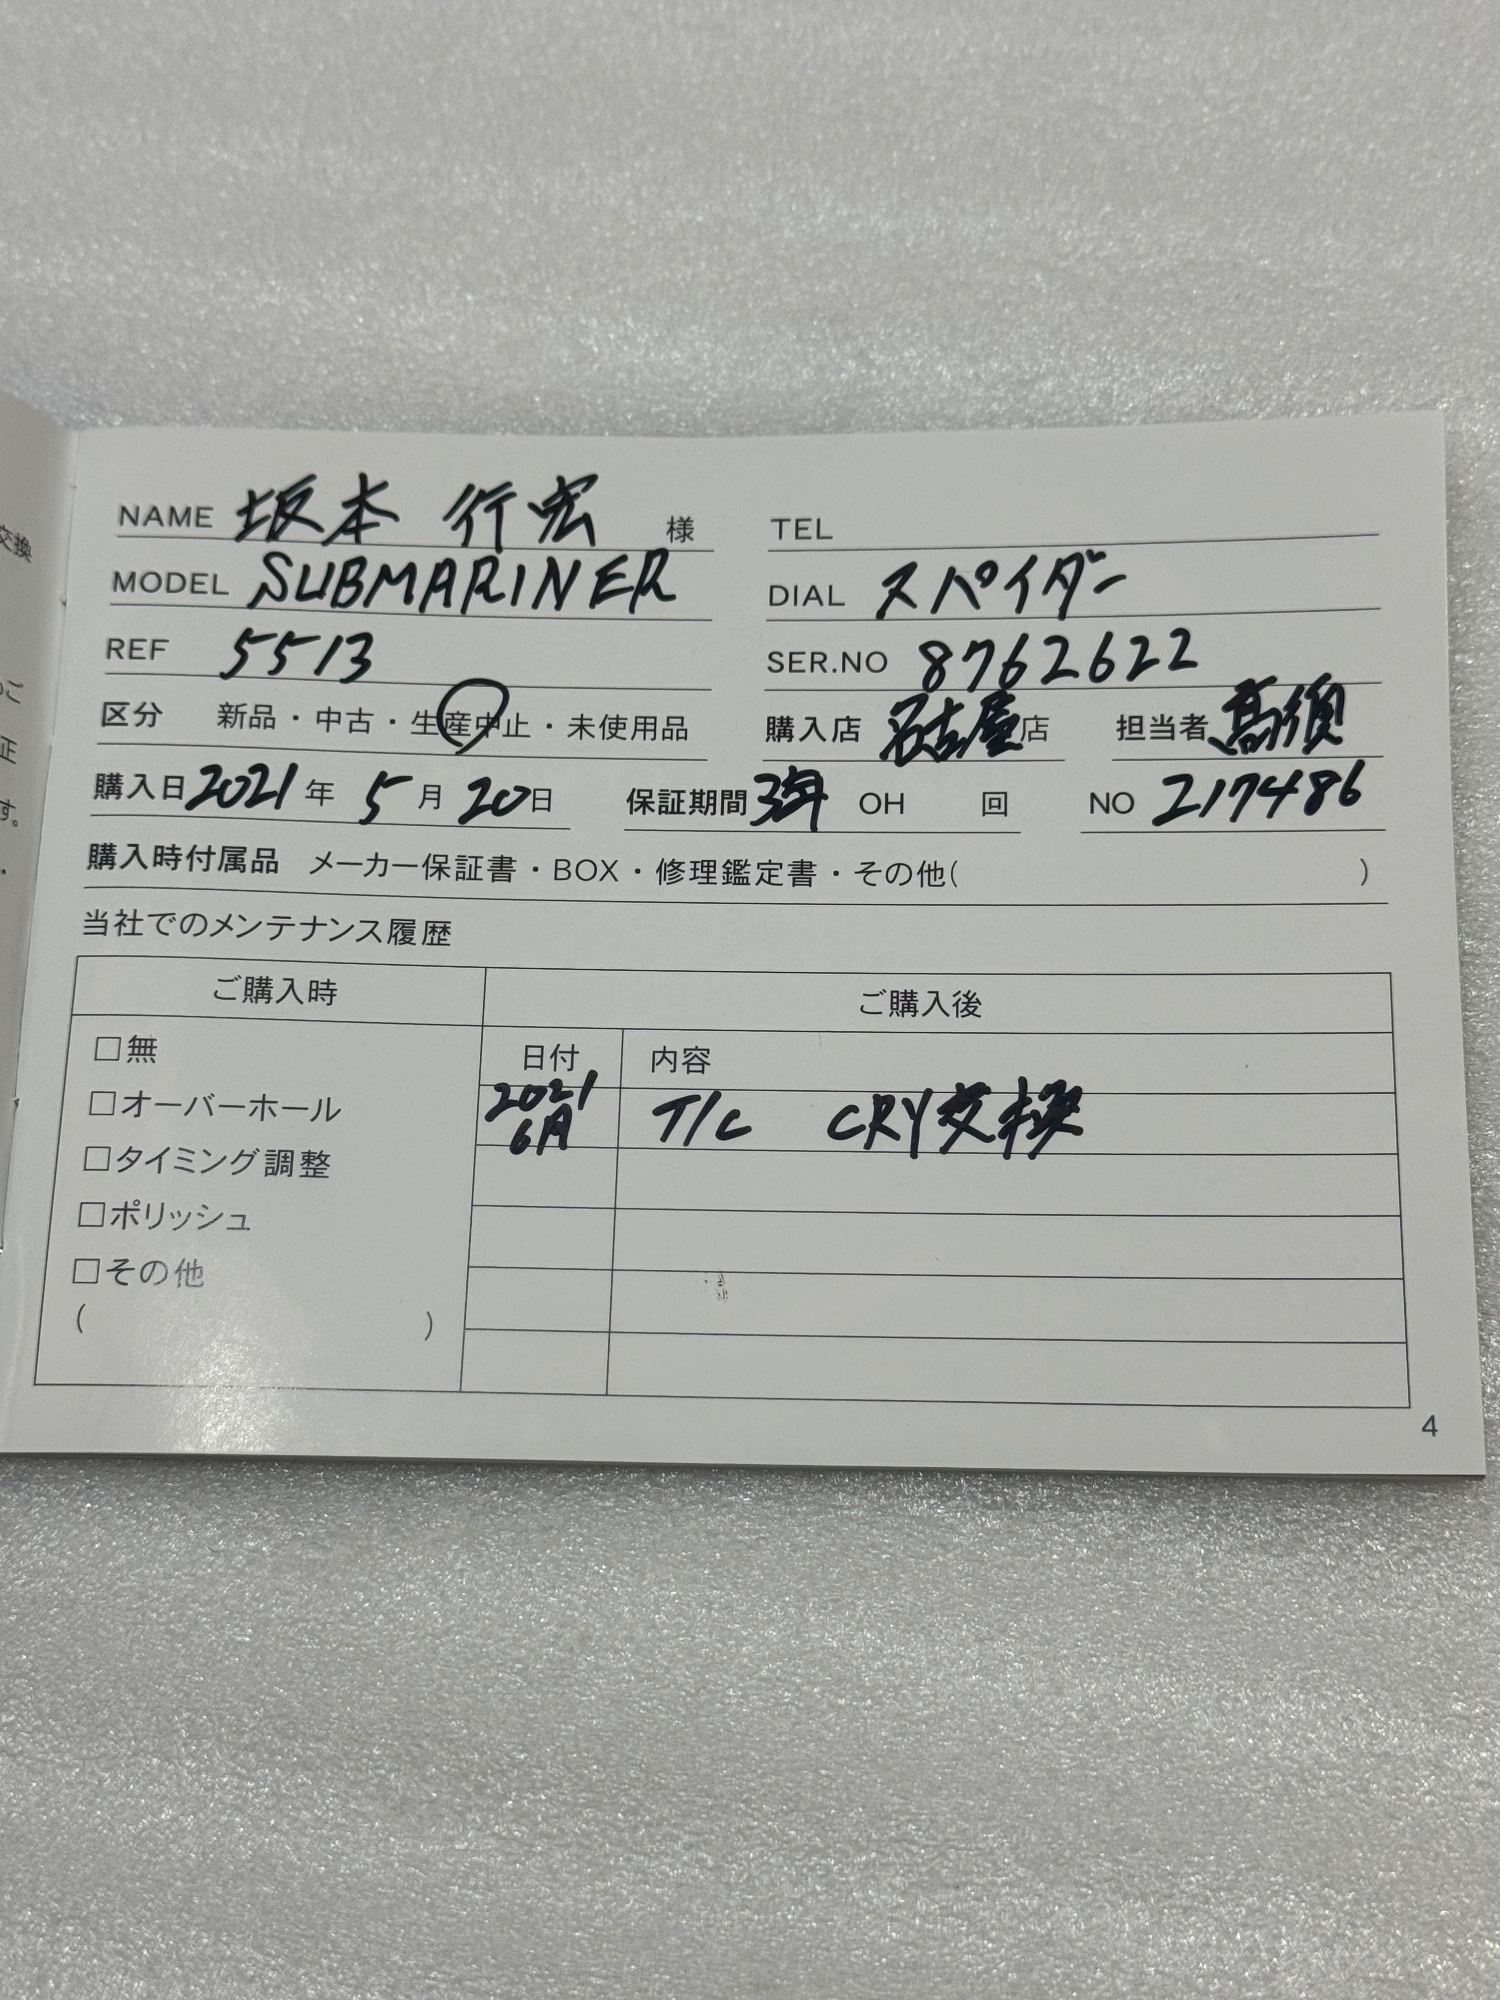 NAME 坂本 行宏 様 TEL
MODEL SUBMARINER DIAL スパイダー
REF 5513 SER.NO 8762622
区分 新品・中古・生産中止・未使用品 購入店 名古屋店 担当者 高須
購入日 2021年 5月 20日 保証期間 3年 OH 回 NO 217486
購入時付属品 メーカー保証書・BOX・修理鑑定書・その他( )
当社でのメンテナンス履歴
ご購入時 ご購入後
□無
□オーバーホール
□タイミング調整
□ポリッシュ
□その他
( )
日付 内容
2021 6月 T/C CRY交換
4
交換
のご
正
す。